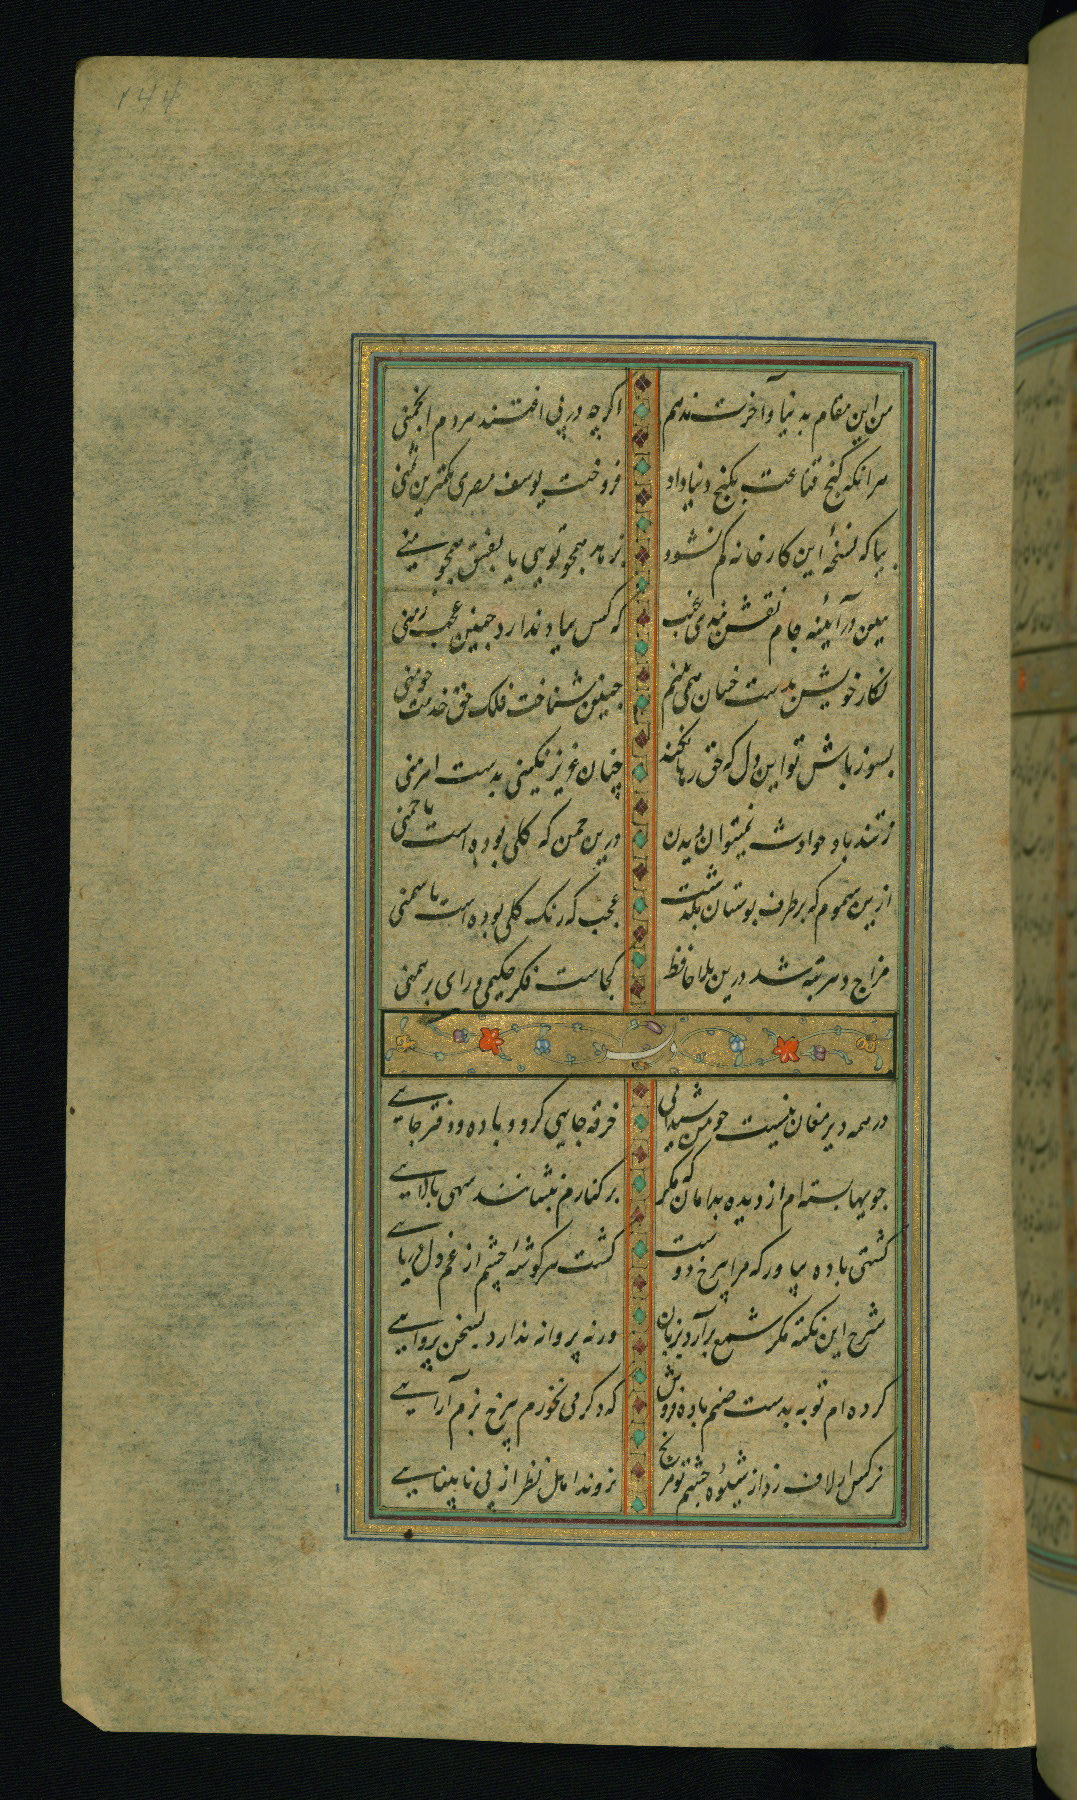 ۲۶۶
من این مقام به دنیا و آخرت ندهم اگرچه در پی افتند مردم انجمنی
هرانکه کنج قناعت بکنج دنیا داد فروخت یوسف مصری بکمترین ثمنی
بیا که نسخهٔ این کارخانه کم نشود بزهد همچو تویی یا بفسق همچو منی
ببین در آئینه جام نقش بندی غیب که کس بیاد ندارد چنین عجب زمنی
نکار خویش بدست خسان همی بینم چنین شناخت فلک حق خدمت چو منی
بصبر باش تو ای دل که حق رها نکند چنان عزیز نکینی بدست اهرمنی
ز تند باد حوادث نمیتوان دیدن درین چمن که کلی بوده است یا سمنی
ازین سموم که بر طرف بوستان بکذشت عجب که رنک کلی بوده است یا سمنی
مزاج دهر تبه شد درین بلا حافظ کجاست فکر حکیمی و رای برهمنی
در همه دیر مغان نیست چو من شیدائی خرقه جایی کرو و باده و دفتر جایی
جویها بسته‌ام از دیده بدامان که مکر بر کنارم بنشانند سهی بالایی
کشتی باده بیاور که مرا بی رخ دوست کشت هر کوشهٔ چشم از غم دل دریایی
شرح این نکته مکر شمع برآرد بزبان ورنه پروانه ندارد بسخن پروایی
کرده‌ام توبه بدست صنم باده فروش که دکر می نخورم بی رخ بزم آرایی
نرکس ار لاف زد از شیوهٔ چشم تو مرنج نروند اهل نظر از پی نابینایی